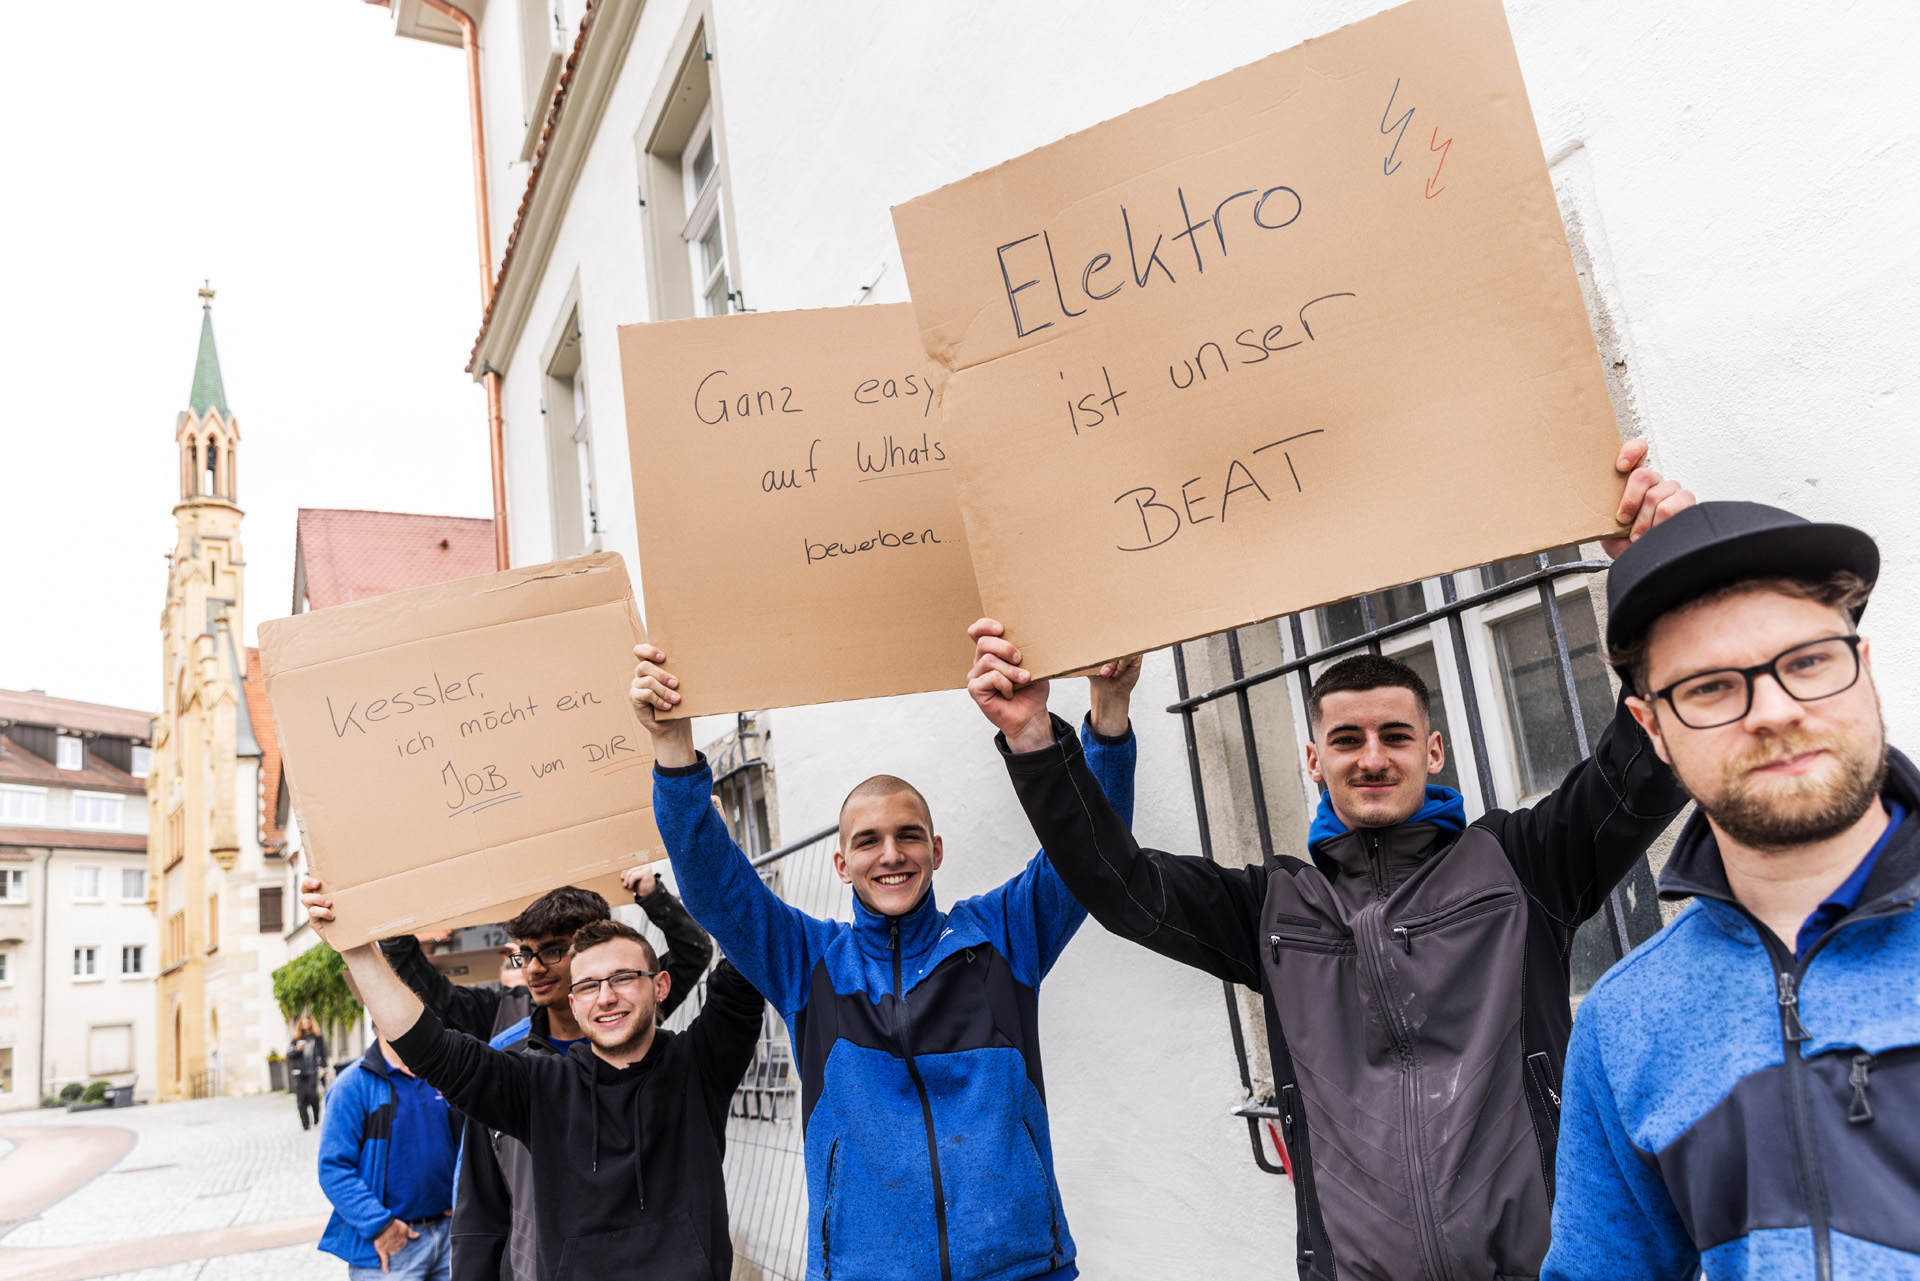 Kessler,
ich möcht ein
JOB von DIR
Ganz easy
auf Whats
bewerben...
Elektro
ist unser
BEAT
12